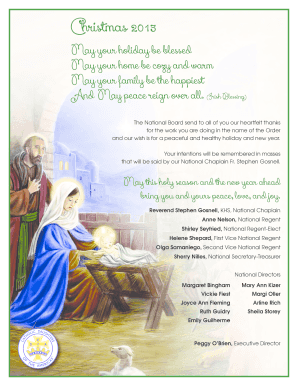 Christmas 2013
May your holiday be blessed
May your home be cozy and warm
May your family be the happiest
And May peace reign over all. (Irish Blessing)
The National Board send to all of you our heartfelt thanks
for the work you are doing in the name of the Order
and our wish is for a peaceful and healthy holiday and new year.
Your intentions will be remembered in masses
that will be said by our National Chaplain Fr. Stephen Gosnell.
May this holy season and the new year ahead
bring you and yours peace, love, and joy.
Reverend Stephen Gosnell, KHS, National Chaplain
Anne Nelson, National Regent
Shirley Seyfried, National Regent-Elect
Helene Shepard, First Vice National Regent
Olga Samaniego, Second Vice National Regent
Sherry Nilles, National Secretary-Treasurer
National Directors
Margaret Bingham
Vickie Feist
Joyce Ann Fleming
Ruth Guidry
Emily Guilherme
Mary Ann Kizer
Margi Oller
Arline Rich
Sheila Storey
Peggy O'Brien, Executive Director